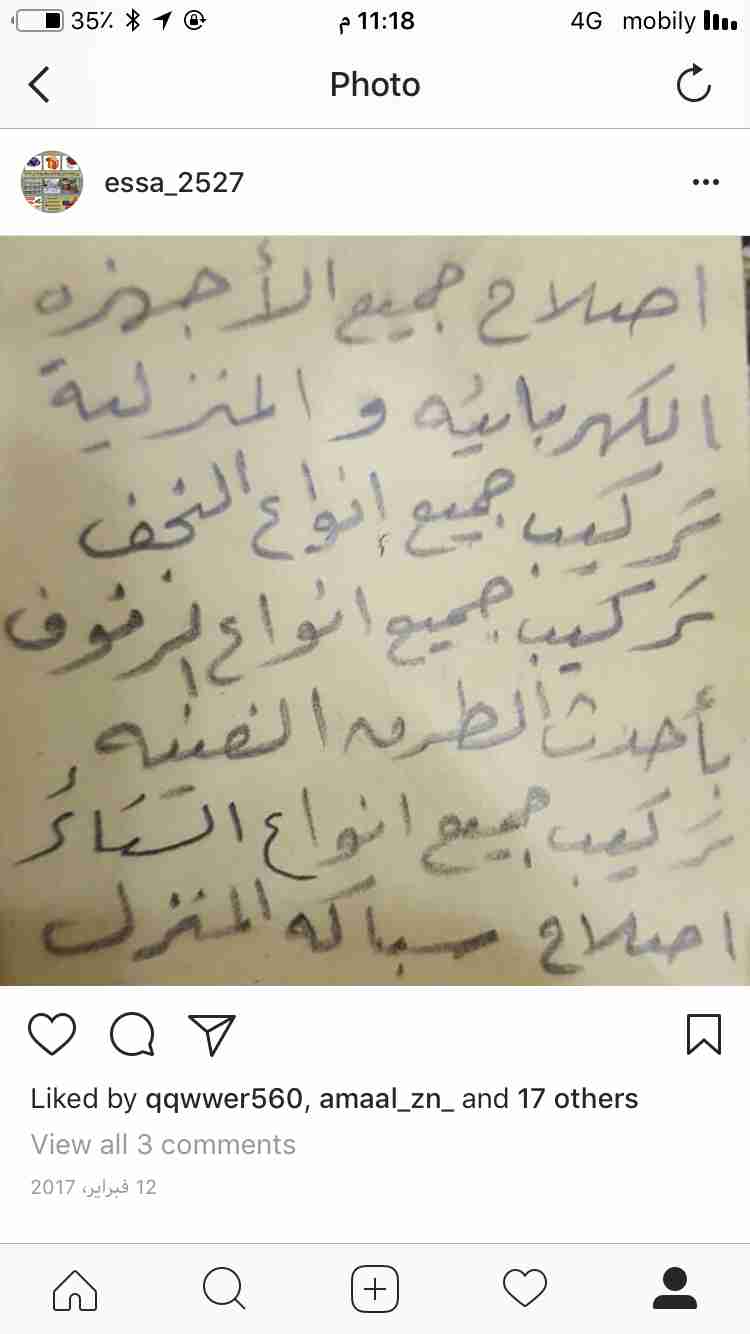 35٪ 11:18 م 4G mobily
Photo
essa_2527
اصلاح جميع الأجهزه
الكهربائيه و المنزلية
تركيب جميع إنواع النجف
تركيب جميع انواع الرفوف
بأحدث الطرق الفنيه
تركيب جميع انواع الستائر
اصلاح سباكه المنزل
Liked by qqwwer560, amaal_zn_ and 17 others
View all 3 comments
12 فبراير، 2017